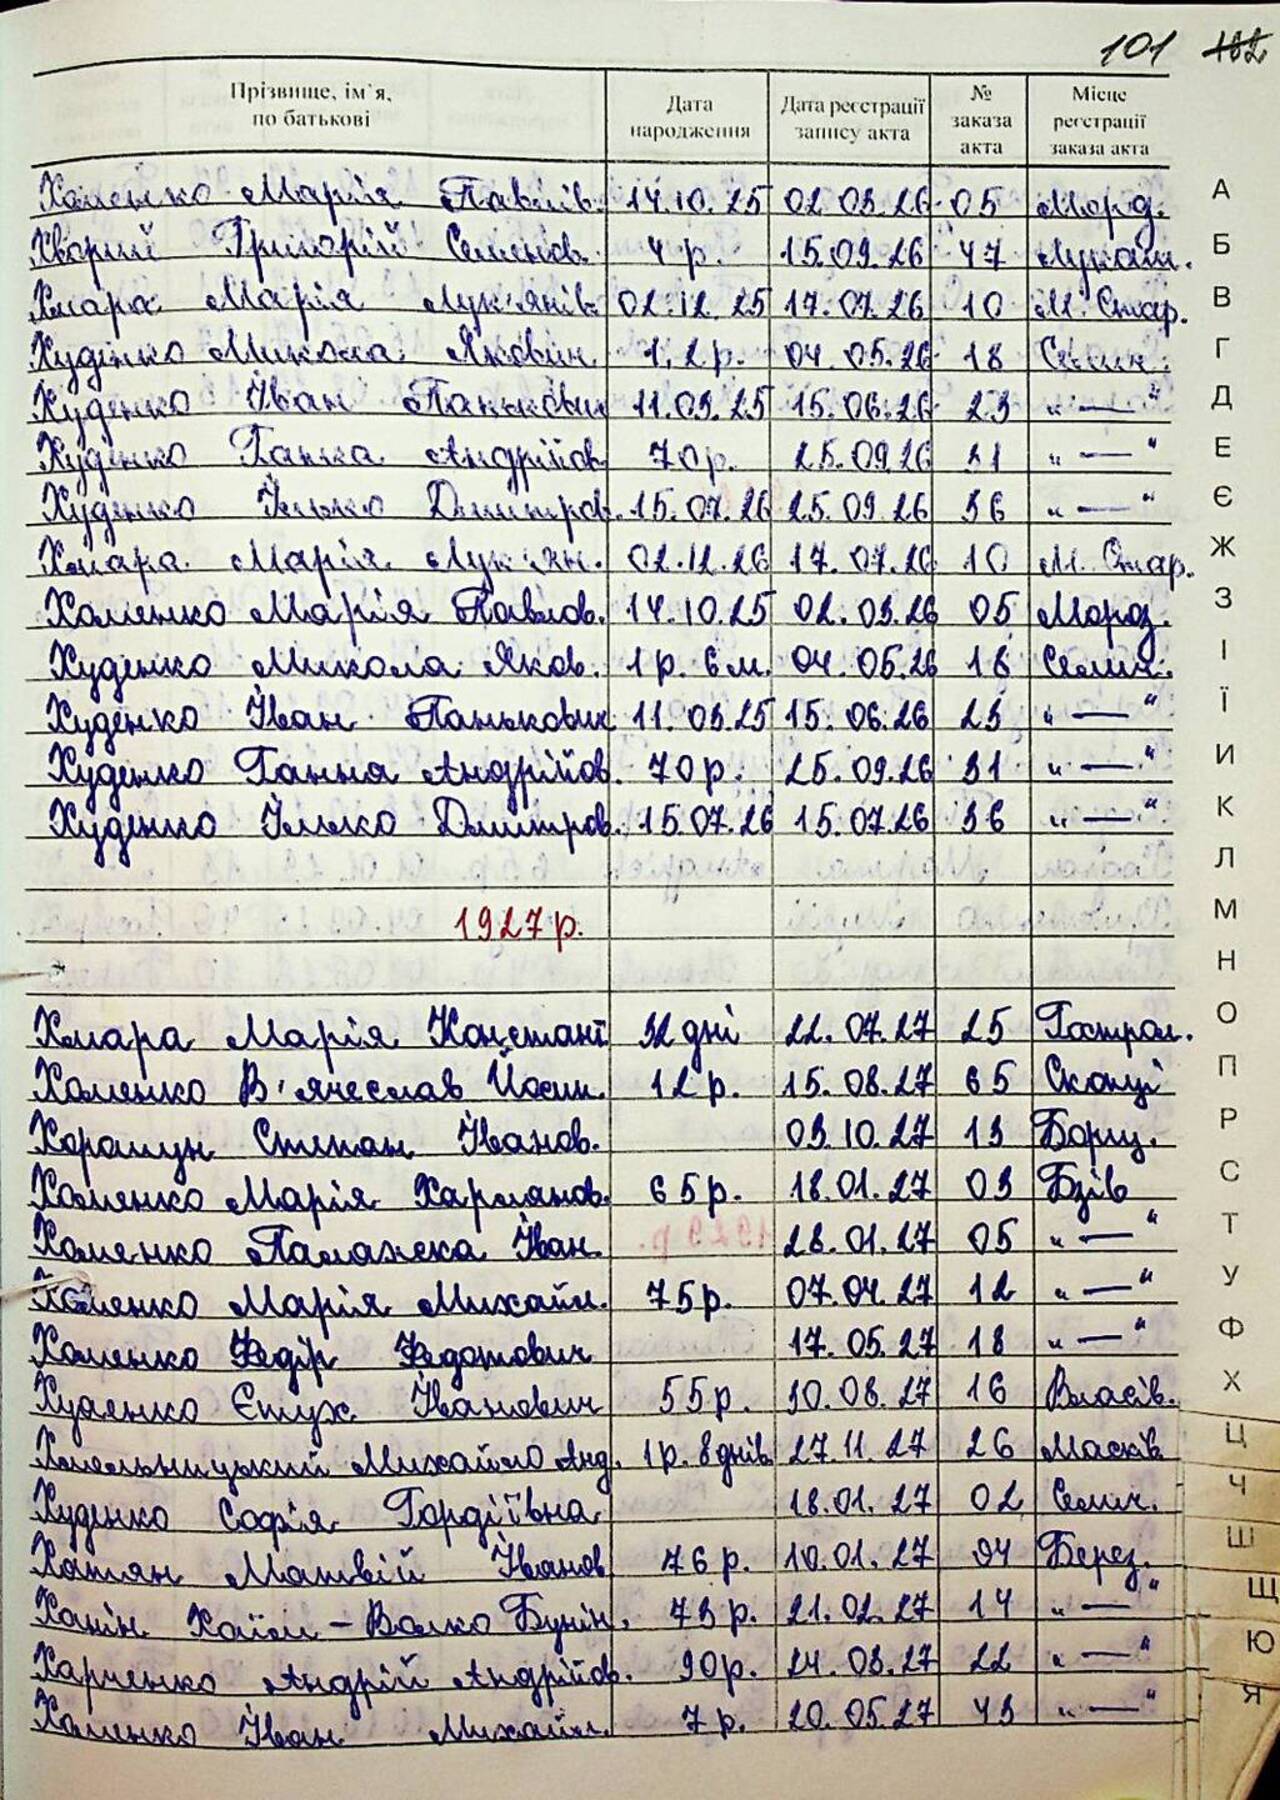 101 182
Прізвище, ім'я, по батькові | Дата народження | Дата реєстрації запису акта | № заказа акта | Місце реєстрації заказа акта
Хоменко Марія Павлів. 14.10.25 02.03.26 05 Мороз. А
Хворий Григорій Семенов. 4 р. 15.09.26 47 Лукаш. Б
Хмара Марія Лук'янів. 02.12.25 17.07.26 10 М. Стар. В
Худенко Микола Якович 1,2 р. 04.05.26 18 Селич. Г
Худенко Іван Панькович 11.03.25 15.06.26 23 " — " Д
Худенко Ганна Андріїов. 70 р. 25.09.26 31 " — " Е
Худенко Ілько Дмитров. 15.07.26 25.09.26 36 " — " Є
Хмара Марія Лук'ян. 02.12.26 17.07.26 10 М. Стар. Ж
Хоменко Марія Павлов. 14.10.25 02.03.26 05 Мороз. З
Худенко Микола Яков. 1 р. 6 м. 04.05.26 18 Селич. І
Худенко Іван Панькович 11.03.25 15.06.26 23 " — " Ї
Худенко Ганна Андріїов. 70 р. 25.09.26 31 " — " И
Худенко Ілько Дмитров. 15.07.26 15.07.26 36 " — " К
Л
1927 р. М
Н
Хмара Марія Констант 32 дні 22.07.27 25 Гострол. О
Хоменко В'ячеслав Йосип. 12 р. 15.08.27 65 Скопці П
Хорошун Степан Іванов. 03.10.27 13 Борщ. Р
Хоменко Марія Харланов. 65 р. 18.01.27 03 Бзів С
Хоменко Палажека Іван. 28.01.27 05 " — " Т
Хоменко Марія Михайл. 75 р. 07.04.27 12 " — " У
Хоменко Федір Федотович 17.05.27 18 " — " Ф
Худенко Єтух Іванович 55 р. 30.08.27 16 Власів. Х
Хмельницький Михайло Анд. 1 р. 8 днів 27.11.27 26 Масків Ц
Худенко Софія Гордіївна 18.01.27 02 Селич. Ч
Хатян Матвій Іванов 76 р. 10.01.27 04 Берез. Ш
Ханін Хаїм - Волко Бунін. 73 р. 21.02.27 14 " — " Щ
Харченко Андрій Андріїов. 90 р. 24.03.27 22 " — " Ю
Хоменко Іван Михайл. 7 р. 20.05.27 43 " — " Я